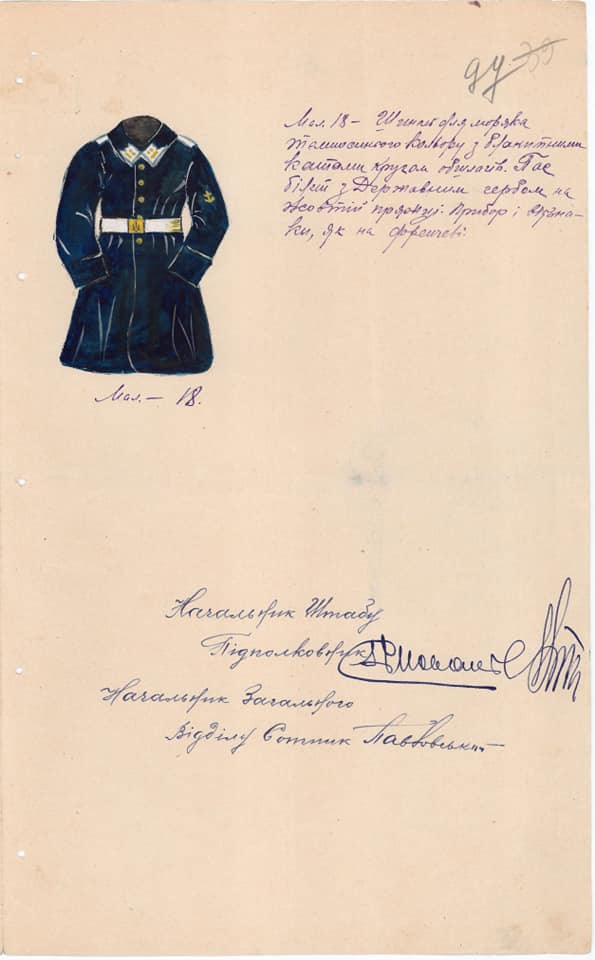 94 39
Мал. 18 – Шинеля для моряка
темносинього кольору з блакитними
кантами кругом обшлагів. Пас
білий з Державним гербом на
жовтій пряжці. Прибор і відзна-
ки, як на френчеві.
Мал. – 18.
Начальник Штабу
Підполковник
Начальник Загального
Відділу Сотник